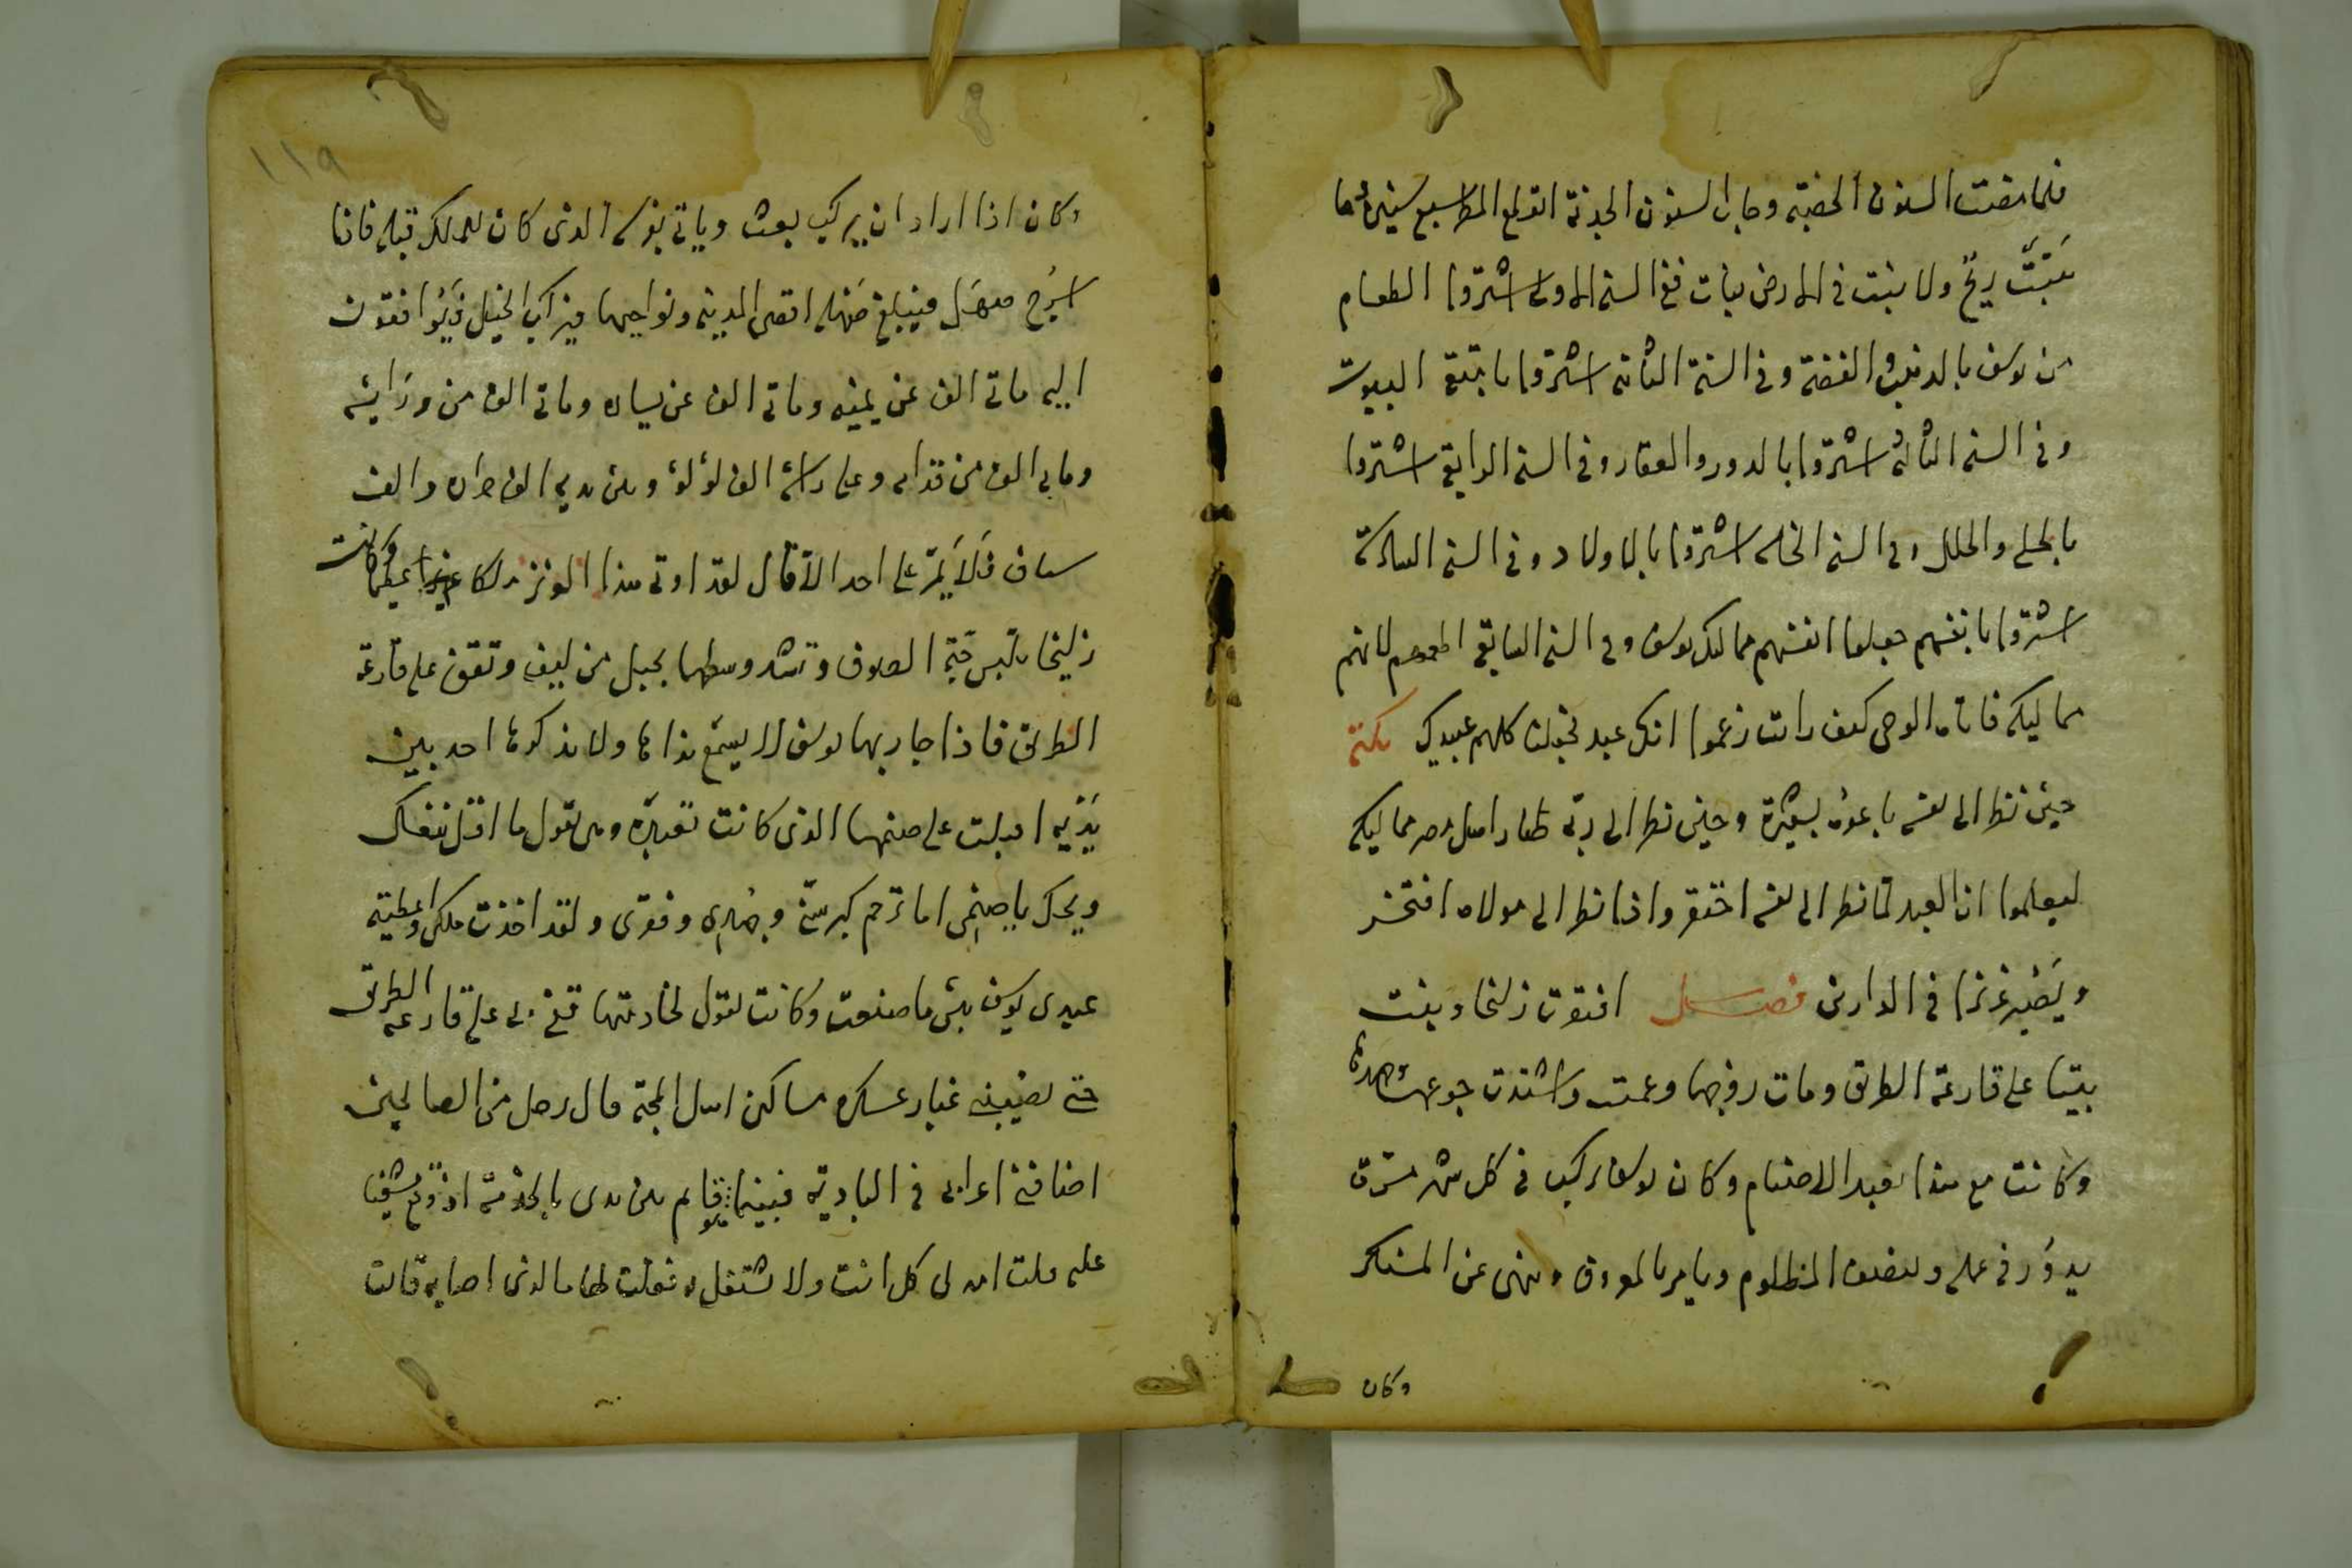 فلما مضت السنون الخصبة وجاءت السنون الجدبة انقطع المطر سبع سنين فما
هَبَّت ريح ولا ينبت في الارض نبات ففي السنة الاولى اشتروا الطعام
من يوسف بالذهب والفضة وفي السنة الثانية اشتروا بامتعة البيوت
وفي السنة الثالثة اشتروا بالدور والعقار وفي السنة الرابعة اشتروا
بالحلي والحلل وفي السنة الخامسة اشتروا بالاولاد وفي السنة السادسة
اشتروا بانفسهم جعلوا انفسهم مماليك يوسف وفي السنة السابعة اطعمهم لانهم
مماليكه فاتاه الوحي كيف رايت زعموا انك عبد فجعلت كلهم عبيدك نكتة
حين نظر الى نفسه باعوه بعشرة وحين نظر الى ربه صار اهل مصر مماليكه
ليعلموا ان العبد لما نظر الى نفسه احتقر واذا نظر الى مولاه افتخر
ويصير عزيزا في الدارين فصل افتقرت زليخا وبنت
بيتا على قارعة الطريق ومات زوجها وعميت واشتدت جوعها وجهدها
وكانت مع هذا تعبد الاصنام وكان يوسف يركب في كل شهر مرة
يدور في عمله وينصف المظلوم ويامر بالمعروف وينهى عن المنكر
وكان
١١٩
وكان اذا اراد ان يركب بعث وياتي بفرسه الذي كان للملك قبله فاذا
اسرج صهل فيبلغ صهله اقصى المدينة ونواحيها فيركب الخيل فيوافقون
اليه ماتي الف عن يمينه وماتي الف عن يساره وماتي الف من ورائه
وماتي الف من قدامه وعلى راسه الف لؤلؤ وبين يديه الف حراب والف
سياف فلا يمر على احد الا قال لقد اوتي هذا العزيز ملكا عزيزا عظيما وكانت
زليخا تلبس جبة الصوف وتشد وسطها بحبل من ليف وتقف على قارعة
الطريق فاذا جاز بها يوسف لا يسمع نداها ولا يذكرها احد بين
يديه اقبلت على صنمها الذي كانت تعبده وهي تقول ما اقل نفعك
ويحك يا صنمي اما ترحم كبر سني وضري وفقري ولقد اخذت ملكي واعطيته
عبدي يوسف بئس ما صنعت وكانت تقول لخادمتها قفي بي على قارعة الطريق
حتى يصيبني غبار عسكره مساكين اهل المحبة قال رجل من الصالحين
اضافني اعرابي في البادية فبينما هو قايم بين يدي بالخدمة اذ وقع مغشيا
عليه قلت اهله لي كل انت ولا تشتغل به فقلت لها ما الذي اصابه قالت